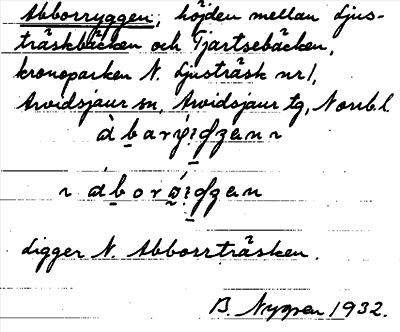 Abborryggen, höjden mellan Ljus-
träskbäcken och Tjartsebäcken,
kronoparken N. Ljusträsk nr 1,
Arvidsjaur sn, Arvidsjaur tg, Norrb. l.
ligger N. Abborrträsken.
B. Nygren 1932.